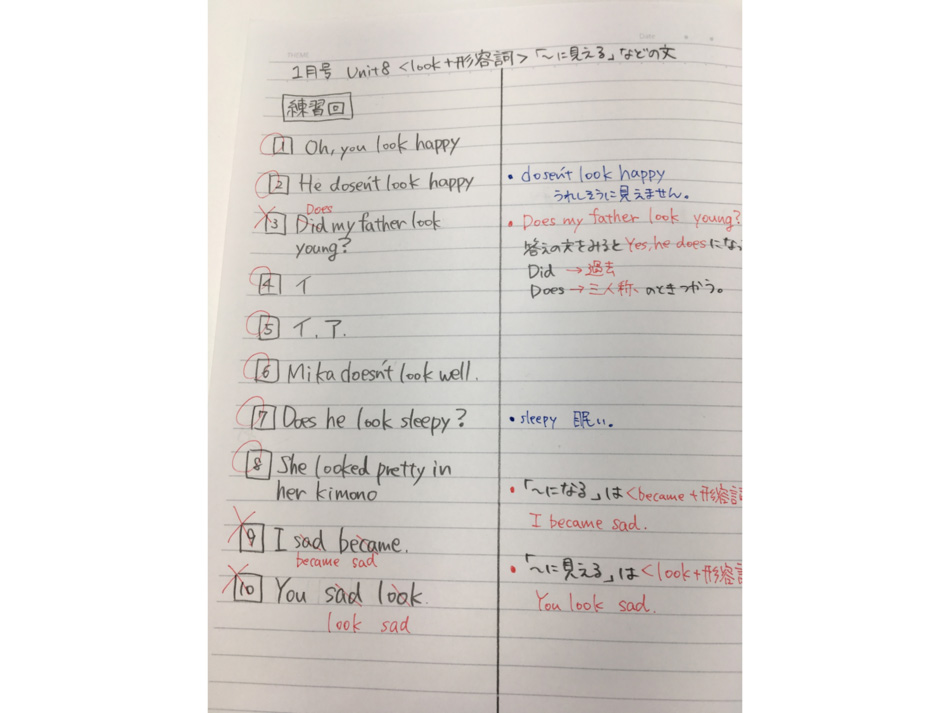 Date
1月号 Unit8 <look+形容詞>「~に見える」などの文
練習回
1 Oh, you look happy
2 He dosen't look happy
・dosen't look happy
うれしそうに見えません。
Does
3 Did my father look
young?
・Does my father look young?
答えの文をみるとYes, he doesにな
Did →過去
Does →三人称 のときつかう。
4 イ
5 イ.ア.
6 Mika doesn't look well.
7 Does he look sleepy?
・sleepy 眠い。
8 She looked pretty in
her kimono
・「~になる」は<became+形容詞
I became sad.
9 I sad became.
became sad
・「~に見える」は<look+形容詞
You look sad.
10 You sad look.
look sad